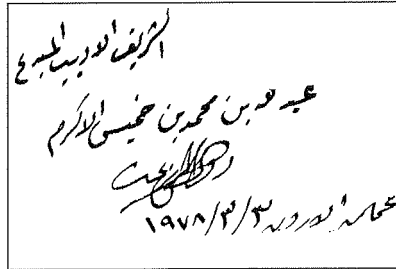 الشريف الاديب المبدع
عبد الله بن محمد بن خميس الاكرم
عمان الاردن ١٩٧٨/٣/٣